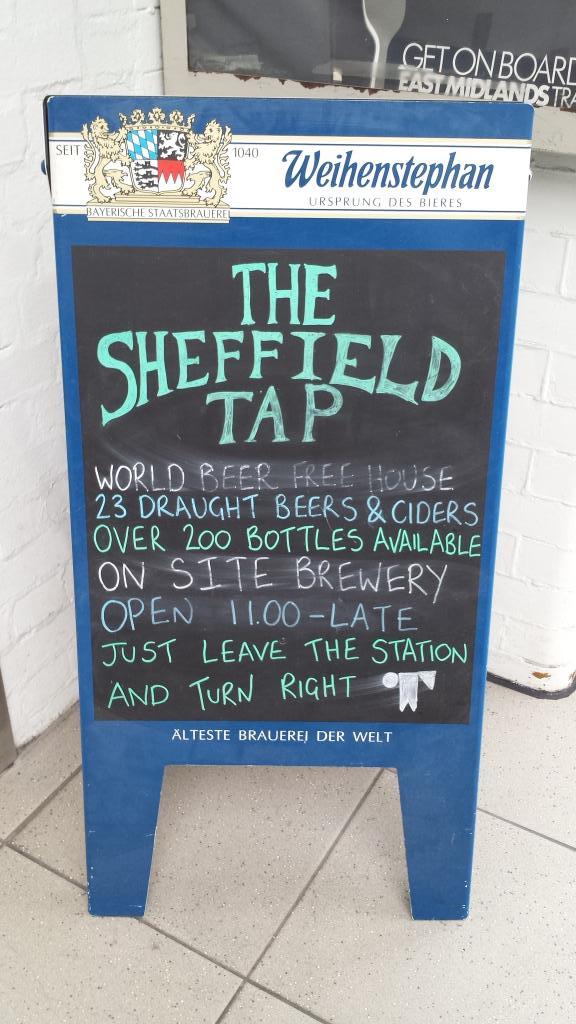 GET ON BOARD
EAST MIDLANDS TRA
SEIT 1040
Weihenstephan
URSPRUNG DES BIERES
BAYERISCHE STAATSBRAUEREI
THE
SHEFFIELD
TAP
WORLD BEER FREE HOUSE
23 DRAUGHT BEERS & CIDERS
OVER 200 BOTTLES AVAILABLE
ON SITE BREWERY
OPEN 11.00-LATE
JUST LEAVE THE STATION
AND TURN RIGHT
ÄLTESTE BRAUEREI DER WELT